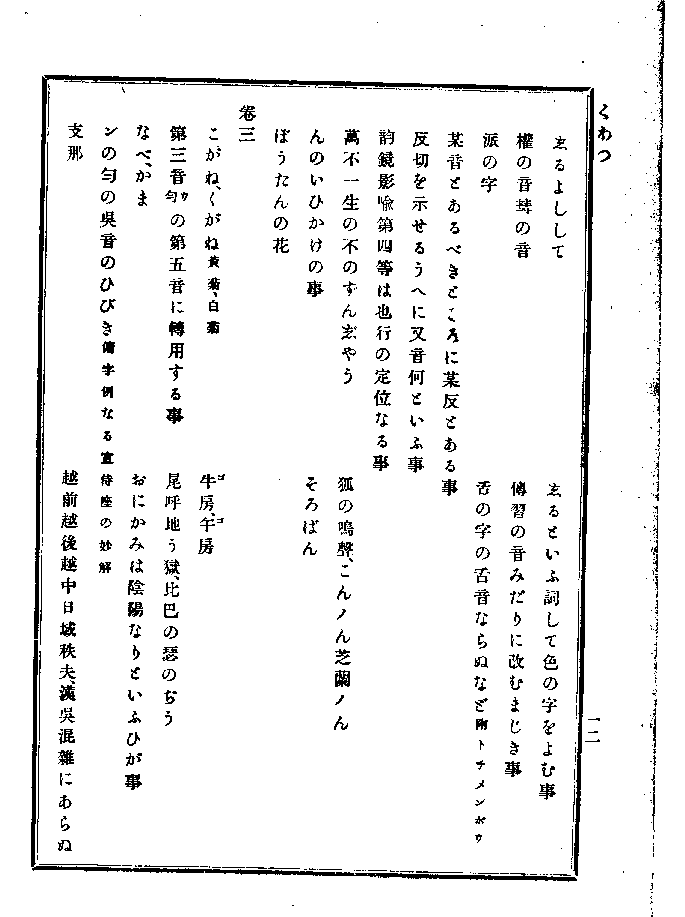 くわつ
ゑるよしして
ゑるといふ詞して色の字をよむ事
權の音
の音
傳習の音みだりに改むまじき事
派の字
舌の字の舌音ならぬなど附トチメンボウ
某音とあるべきところに某反とある事
反切を示せるうへに又音何といふ事
韵鏡影喩第四等は也行の定位なる事
萬不一生の不のすんゑやう
狐の鳴聲、こんノん芝蘭ノん
んのいひかけの事
そろばん
ぼうたんの花
卷三
こがね、くがね黄菊、白菊
牛房、午房
ゴ
ゴ
第三音勻ウの第五音に轉用する事
尾呼地う獄、比巴の瑟のぢう
なべ、かま
おにかみは陰陽なりといふひが事
ンの勻の吳音のひびき傭字例なる宣待座の妙解
支那
越前越後越中日域秩夫、漢吳混雜にあらぬ
一二